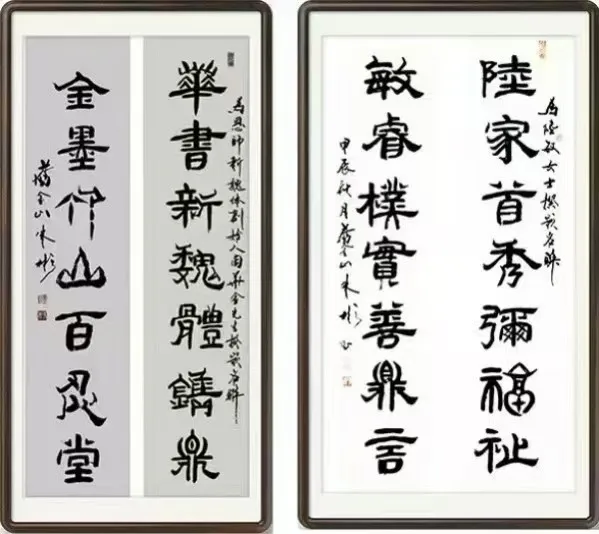 華書新魏體鐫鼎
為恩師新魏體創始人周華金先生撰嵌名聯
金墨竹山百忍堂
舊金山朱彬
陸家首秀彌福祉
為陸敏女士撰嵌名聯
敏睿樸實善鼎言
甲辰秋月舊金山朱彬